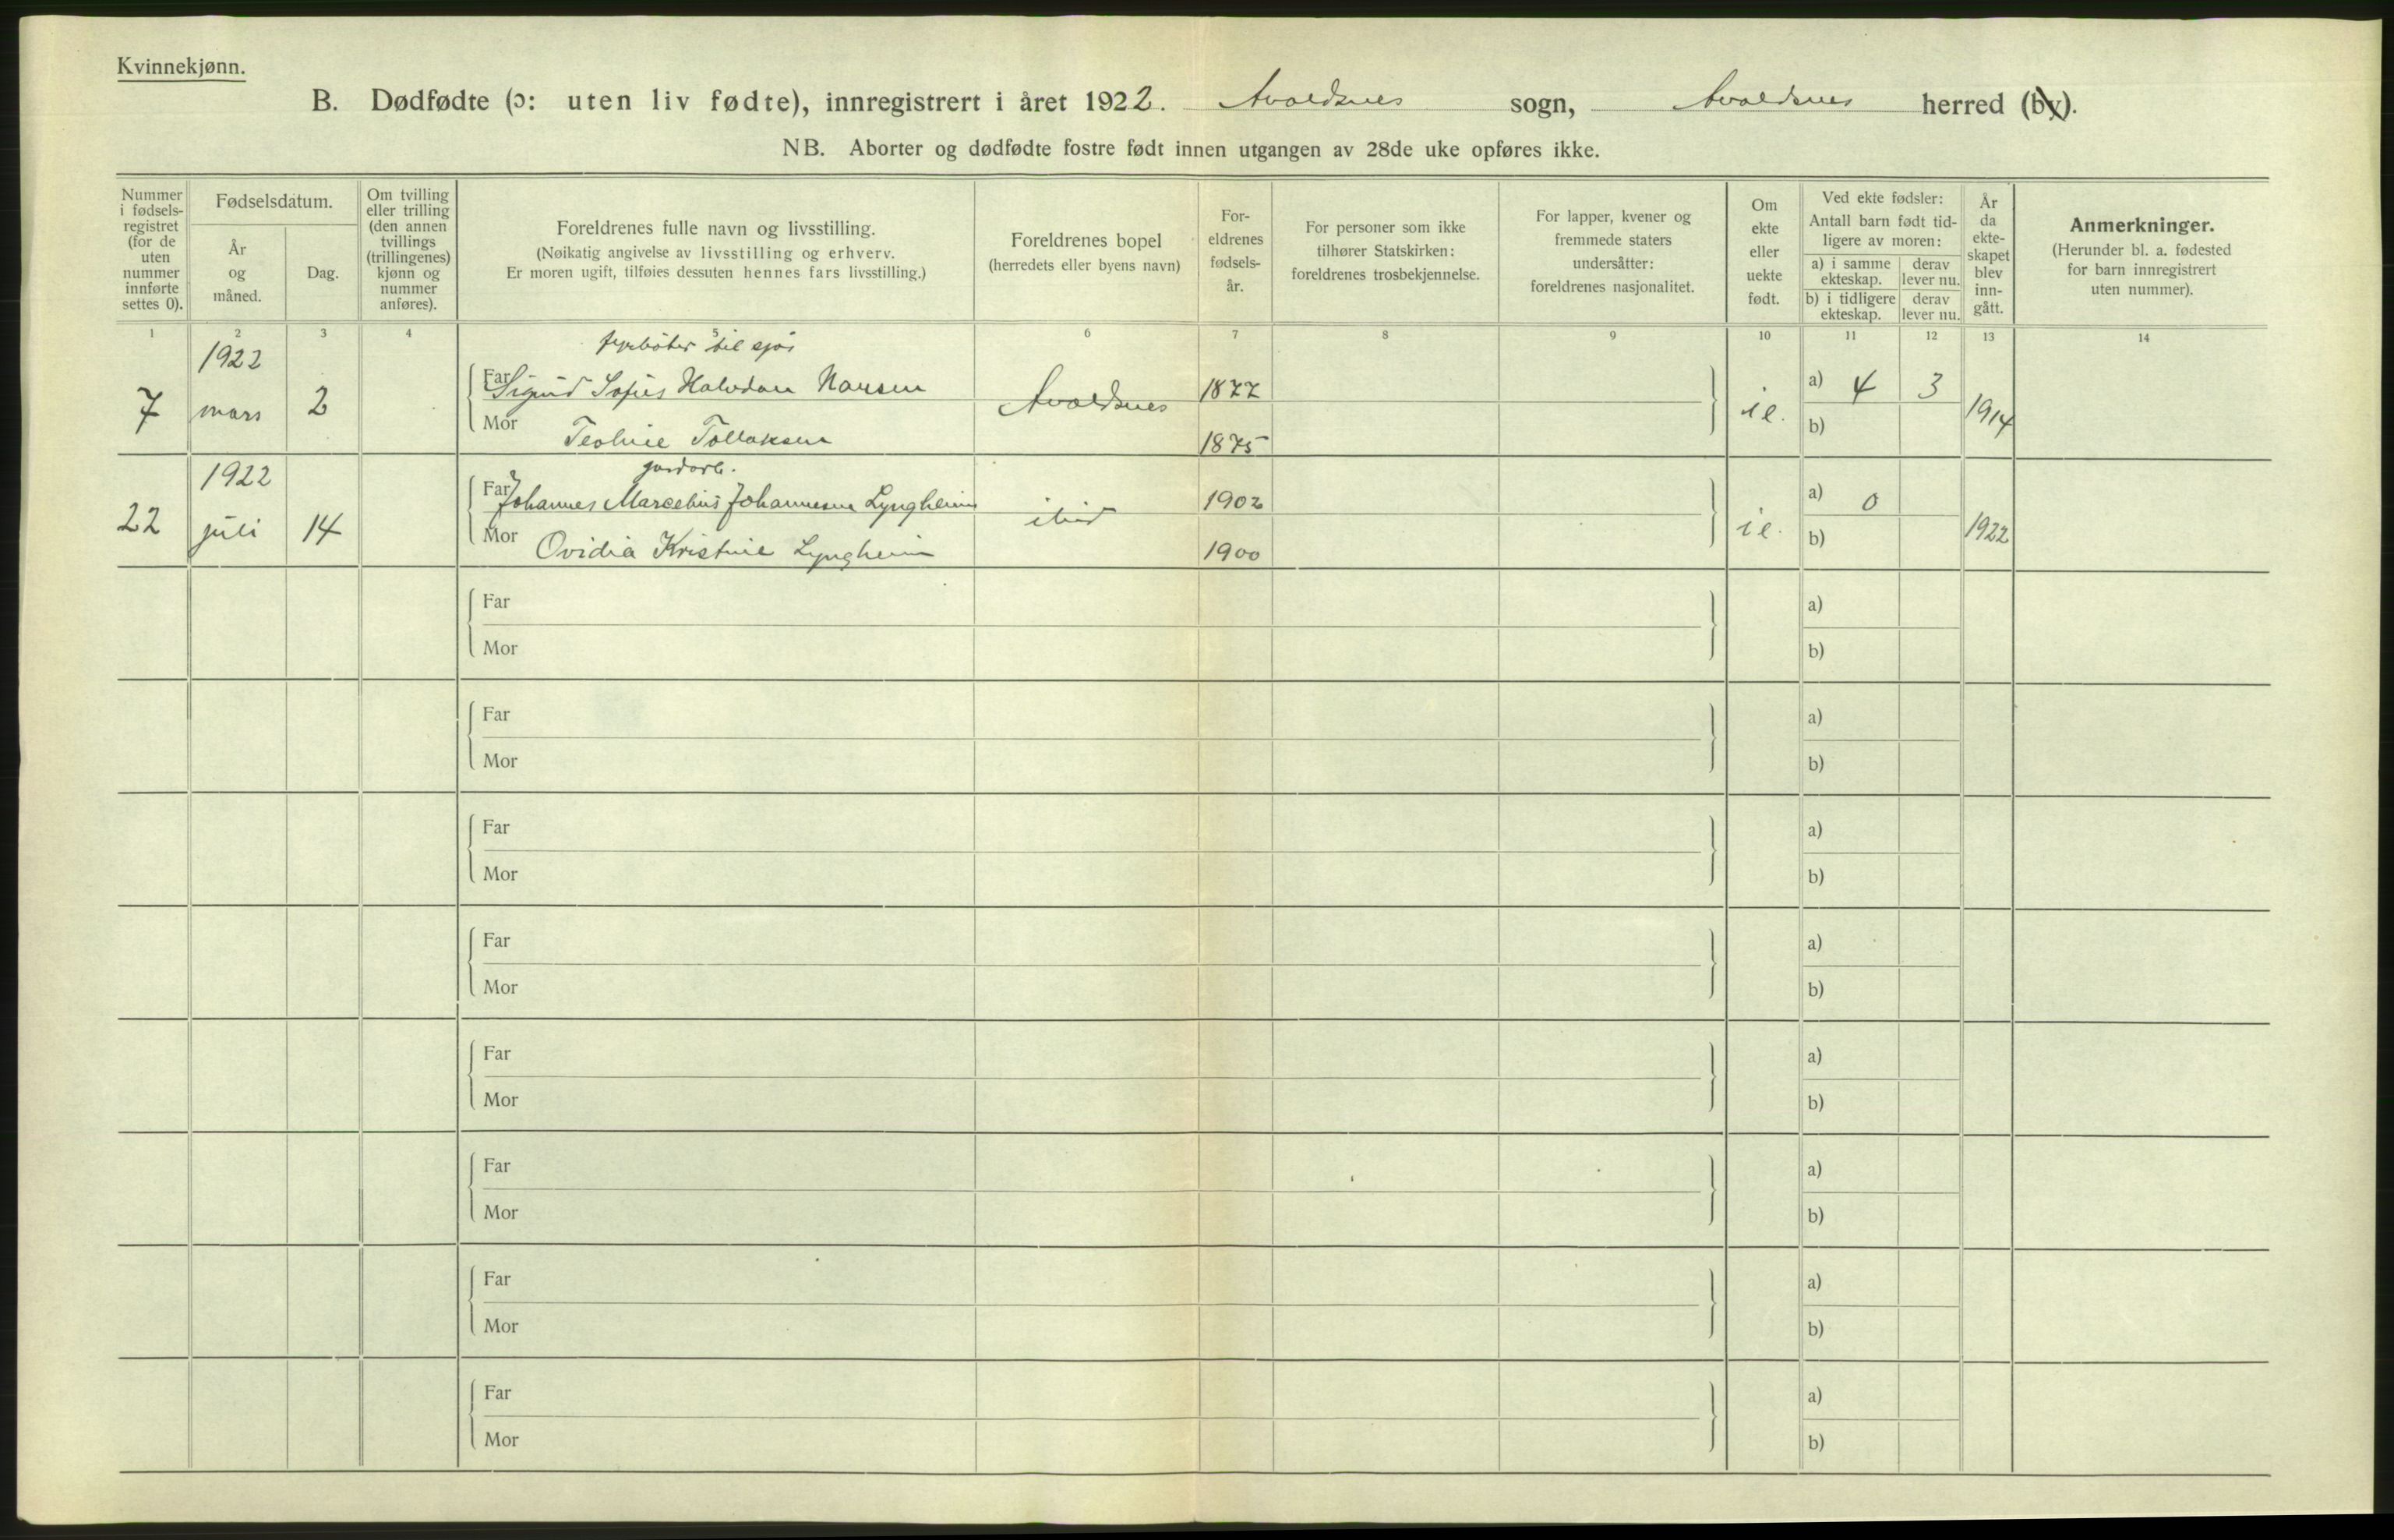 Kvinnekjønn.
B. Dødfødte (ɔ: uten liv fødte), innregistrert i året 1922. Avaldsnes sogn, Avaldsnes herred (by).
NB. Aborter og dødfødte fostre født innen utgangen av 28de uke opføres ikke.
Nummer i fødsels- registret (for de uten nummer innførte settes 0).
Fødselsdatum.
År og måned.
Dag.
Om tvilling eller trilling (den annen tvillings (trillingenes) kjønn og nummer anføres).
Foreldrenes fulle navn og livsstilling.
(Nøikatig angivelse av livsstilling og erhverv.
Er moren ugift, tilføies dessuten hennes fars livsstilling.)
Foreldrenes bopel
(herredets eller byens navn)
For- eldrenes fødsels- år.
For personer som ikke tilhører Statskirken: foreldrenes trosbekjennelse.
For lapper, kvener og fremmede staters undersåtter: foreldrenes nasjonalitet.
Om ekte eller uekte født.
Ved ekte fødsler:
Antall barn født tid- ligere av moren:
a) i samme ekteskap. derav lever nu.
b) i tidligere ekteskap. derav lever nu.
År da ekte- skapet blev inn- gått.
Anmerkninger.
(Herunder bl. a. fødested for barn innregistrert uten nummer).
1 2 3 4 5 6 7 8 9 10 11 12 13 14
1922 fyrbøter til sjøs
7 mars 2 Far Sigurd Sofus Halvdan Hansen Avaldsnes 1877 i e. a) 4 3 1914
Mor Teoline Tollaksen 1875 b)
1922 jordarb.
22 juli 14 Far Johannes Marselius Johannesen Lyngheim ibid 1902 i e. a) 0 1922
Mor Ovidia Kristine Lyngheim 1900 b)
Far a)
Mor b)
Far a)
Mor b)
Far a)
Mor b)
Far a)
Mor b)
Far a)
Mor b)
Far a)
Mor b)
Far a)
Mor b)
Far a)
Mor b)